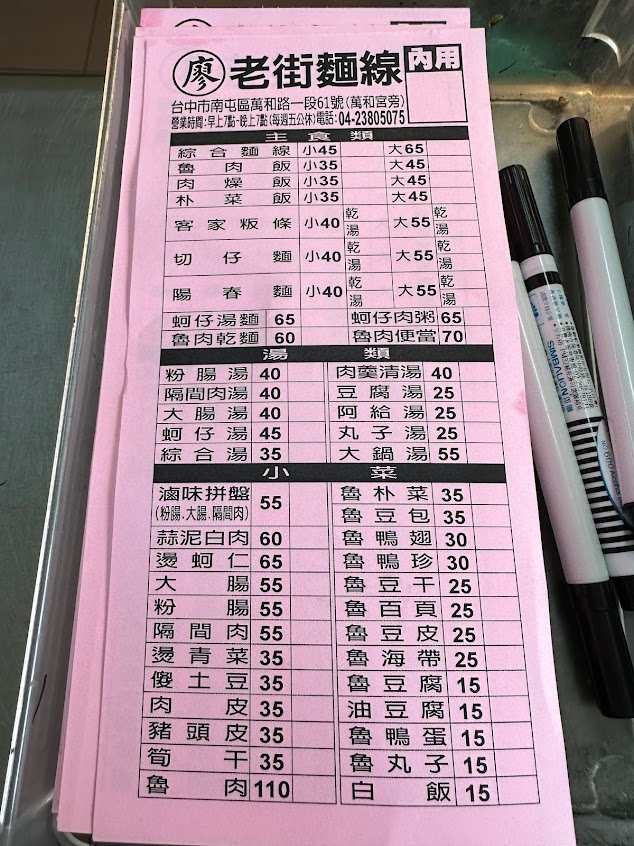 廖 老街麵線 內用
台中市南屯區萬和路一段61號(萬和宮旁)
營業時間:早上7點-晚上7點(每週五公休)電話:04-23805075
主食類
綜合麵線 小45 大65
魯肉飯 小35 大45
肉燥飯 小35 大45
朴菜飯 小35 大45
客家粄條 小40 乾 湯 大55 乾 湯
切仔麵 小40 乾 湯 大55 乾 湯
陽春麵 小40 乾 湯 大55 乾 湯
蚵仔湯麵 65 蚵仔肉粥 65
魯肉乾麵 60 魯肉便當 70
湯類
粉腸湯 40 肉羹清湯 40
隔間肉湯 40 豆腐湯 25
大腸湯 40 阿給湯 25
蚵仔湯 45 丸子湯 25
綜合湯 35 大鍋湯 55
小菜
滷味拼盤 55 魯朴菜 35
(粉腸.大腸.隔間肉) 魯豆包 35
蒜泥白肉 60 魯鴨翅 30
燙蚵仁 65 魯鴨珍 30
大腸 55 魯豆干 25
粉腸 55 魯百頁 25
隔間肉 55 魯豆皮 25
燙青菜 35 魯海帶 25
傻土豆 35 魯豆腐 15
肉皮 35 油豆腐 15
豬頭皮 35 魯鴨蛋 15
筍干 35 魯丸子 15
魯肉 110 白飯 15
SIMBALION